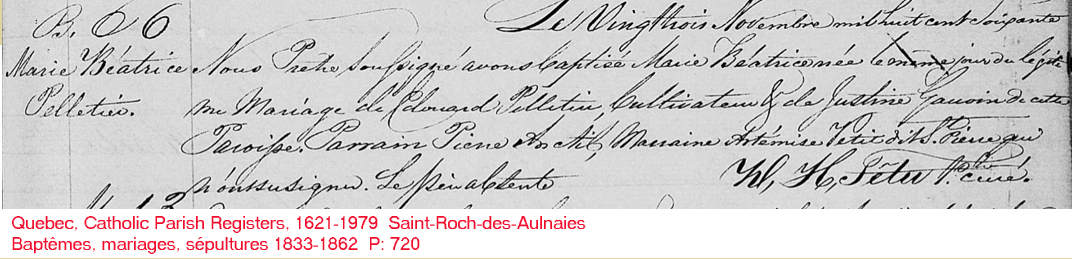 B. 66
Marie Béatrice
Pelletier.
Le Vingt trois Novembre mil huit cent soixante
Nous Prêtre soussigné avons baptisé Marie Béatrice née le même jour du légiti
me Mariage de Edouard Pelletier Cultivateur & de Justine Gauvin de cette
Paroisse. Parrain Pierre Anctil, Marraine Artémise Petit dit St. Pierre qui
n'ont su signer. Le père absente
H, Têtu Ptre curé.
Quebec, Catholic Parish Registers, 1621-1979 Saint-Roch-des-Aulnaies
Baptêmes, mariages, sépultures 1833-1862 P: 720